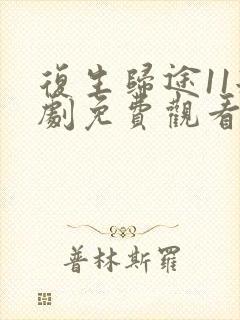 復生歸途11
劇免費觀看
普林斯羅